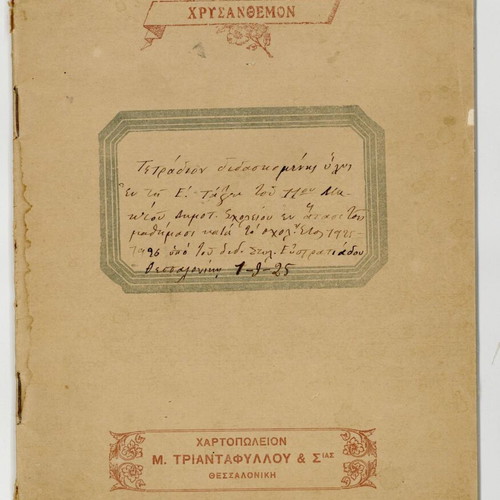 ΧΡΥΣΑΝΘΕΜΟΝ
Τετράδιον διδασκομένης ὕλης
Ἐν τῇ Ε! Τάξει τοῦ 11ου
Δημοτ. Σχολείου ἐν ἅπασι τοῖς
μαθήμασι κατὰ τὸ σχολ. ἔτος 1925-
1926 ὑπὸ τοῦ διδ. Στυλ. Εὐστρατιάδου
Θεσσαλονίκη 1-9-25
ΧΑΡΤΟΠΩΛΕΙΟΝ
Μ. ΤΡΙΑΝΤΑΦΥΛΛΟΥ & ΣΙΑΣ
ΘΕΣΣΑΛΟΝΙΚΗ